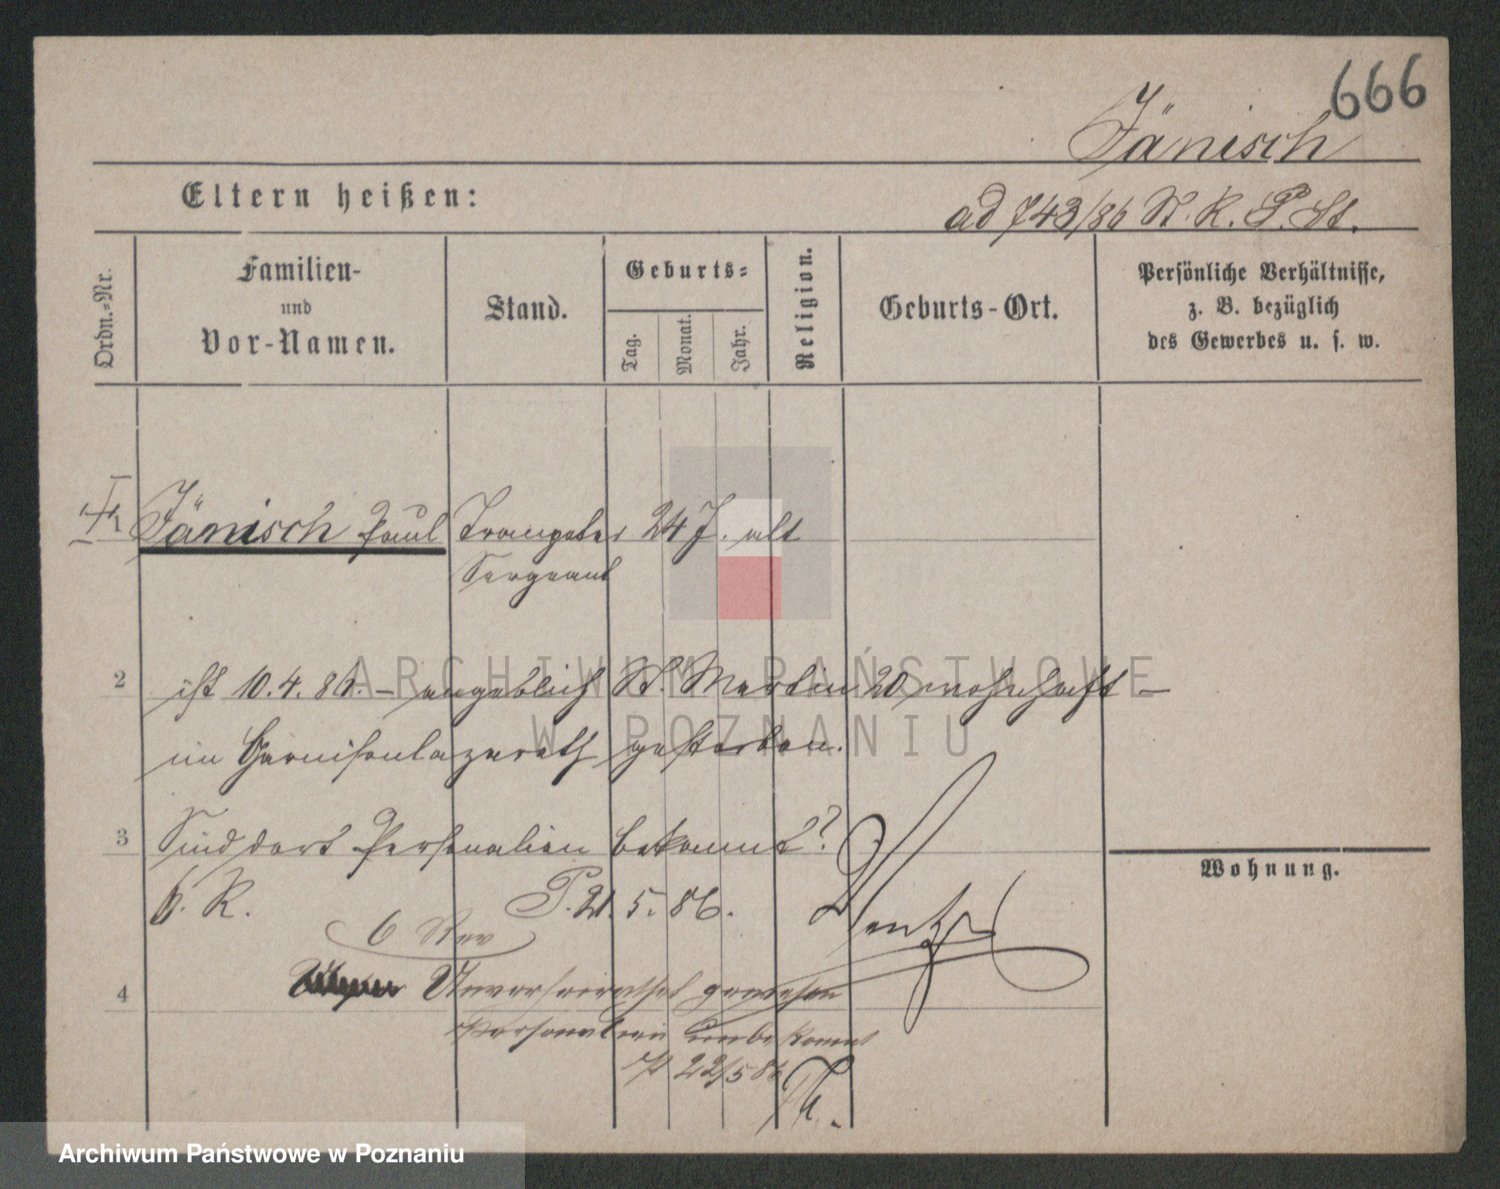 666
Jänisch
Eltern heißen:
ad 743/86 St. K. P. St.
Ordn.-Nr.
Familien-
und
Vor-Namen.
Stand.
Geburts-
Tag.
Monat.
Jahr.
Religion.
Geburts-Ort.
Persönliche Verhältnisse,
z. B. bezüglich
des Gewerbes u. s. w.
Jänisch Paul Trompeter 24 J. alt
Sergeant
2 ist 10.4.86. – angeblich St. Martin 20 wohnhaft –
im Garnisonlazareth gestorben.
3 Sind dort Personalien bekannt?
Wohnung.
6. R. P. 21. 5. 86.
6 Rev
4 Unverheirathet gewesen
Personalien unbekannt
22/5 86
ARCHIWUM PAŃSTWOWE
W POZNANIU
Archiwum Państwowe w Poznaniu